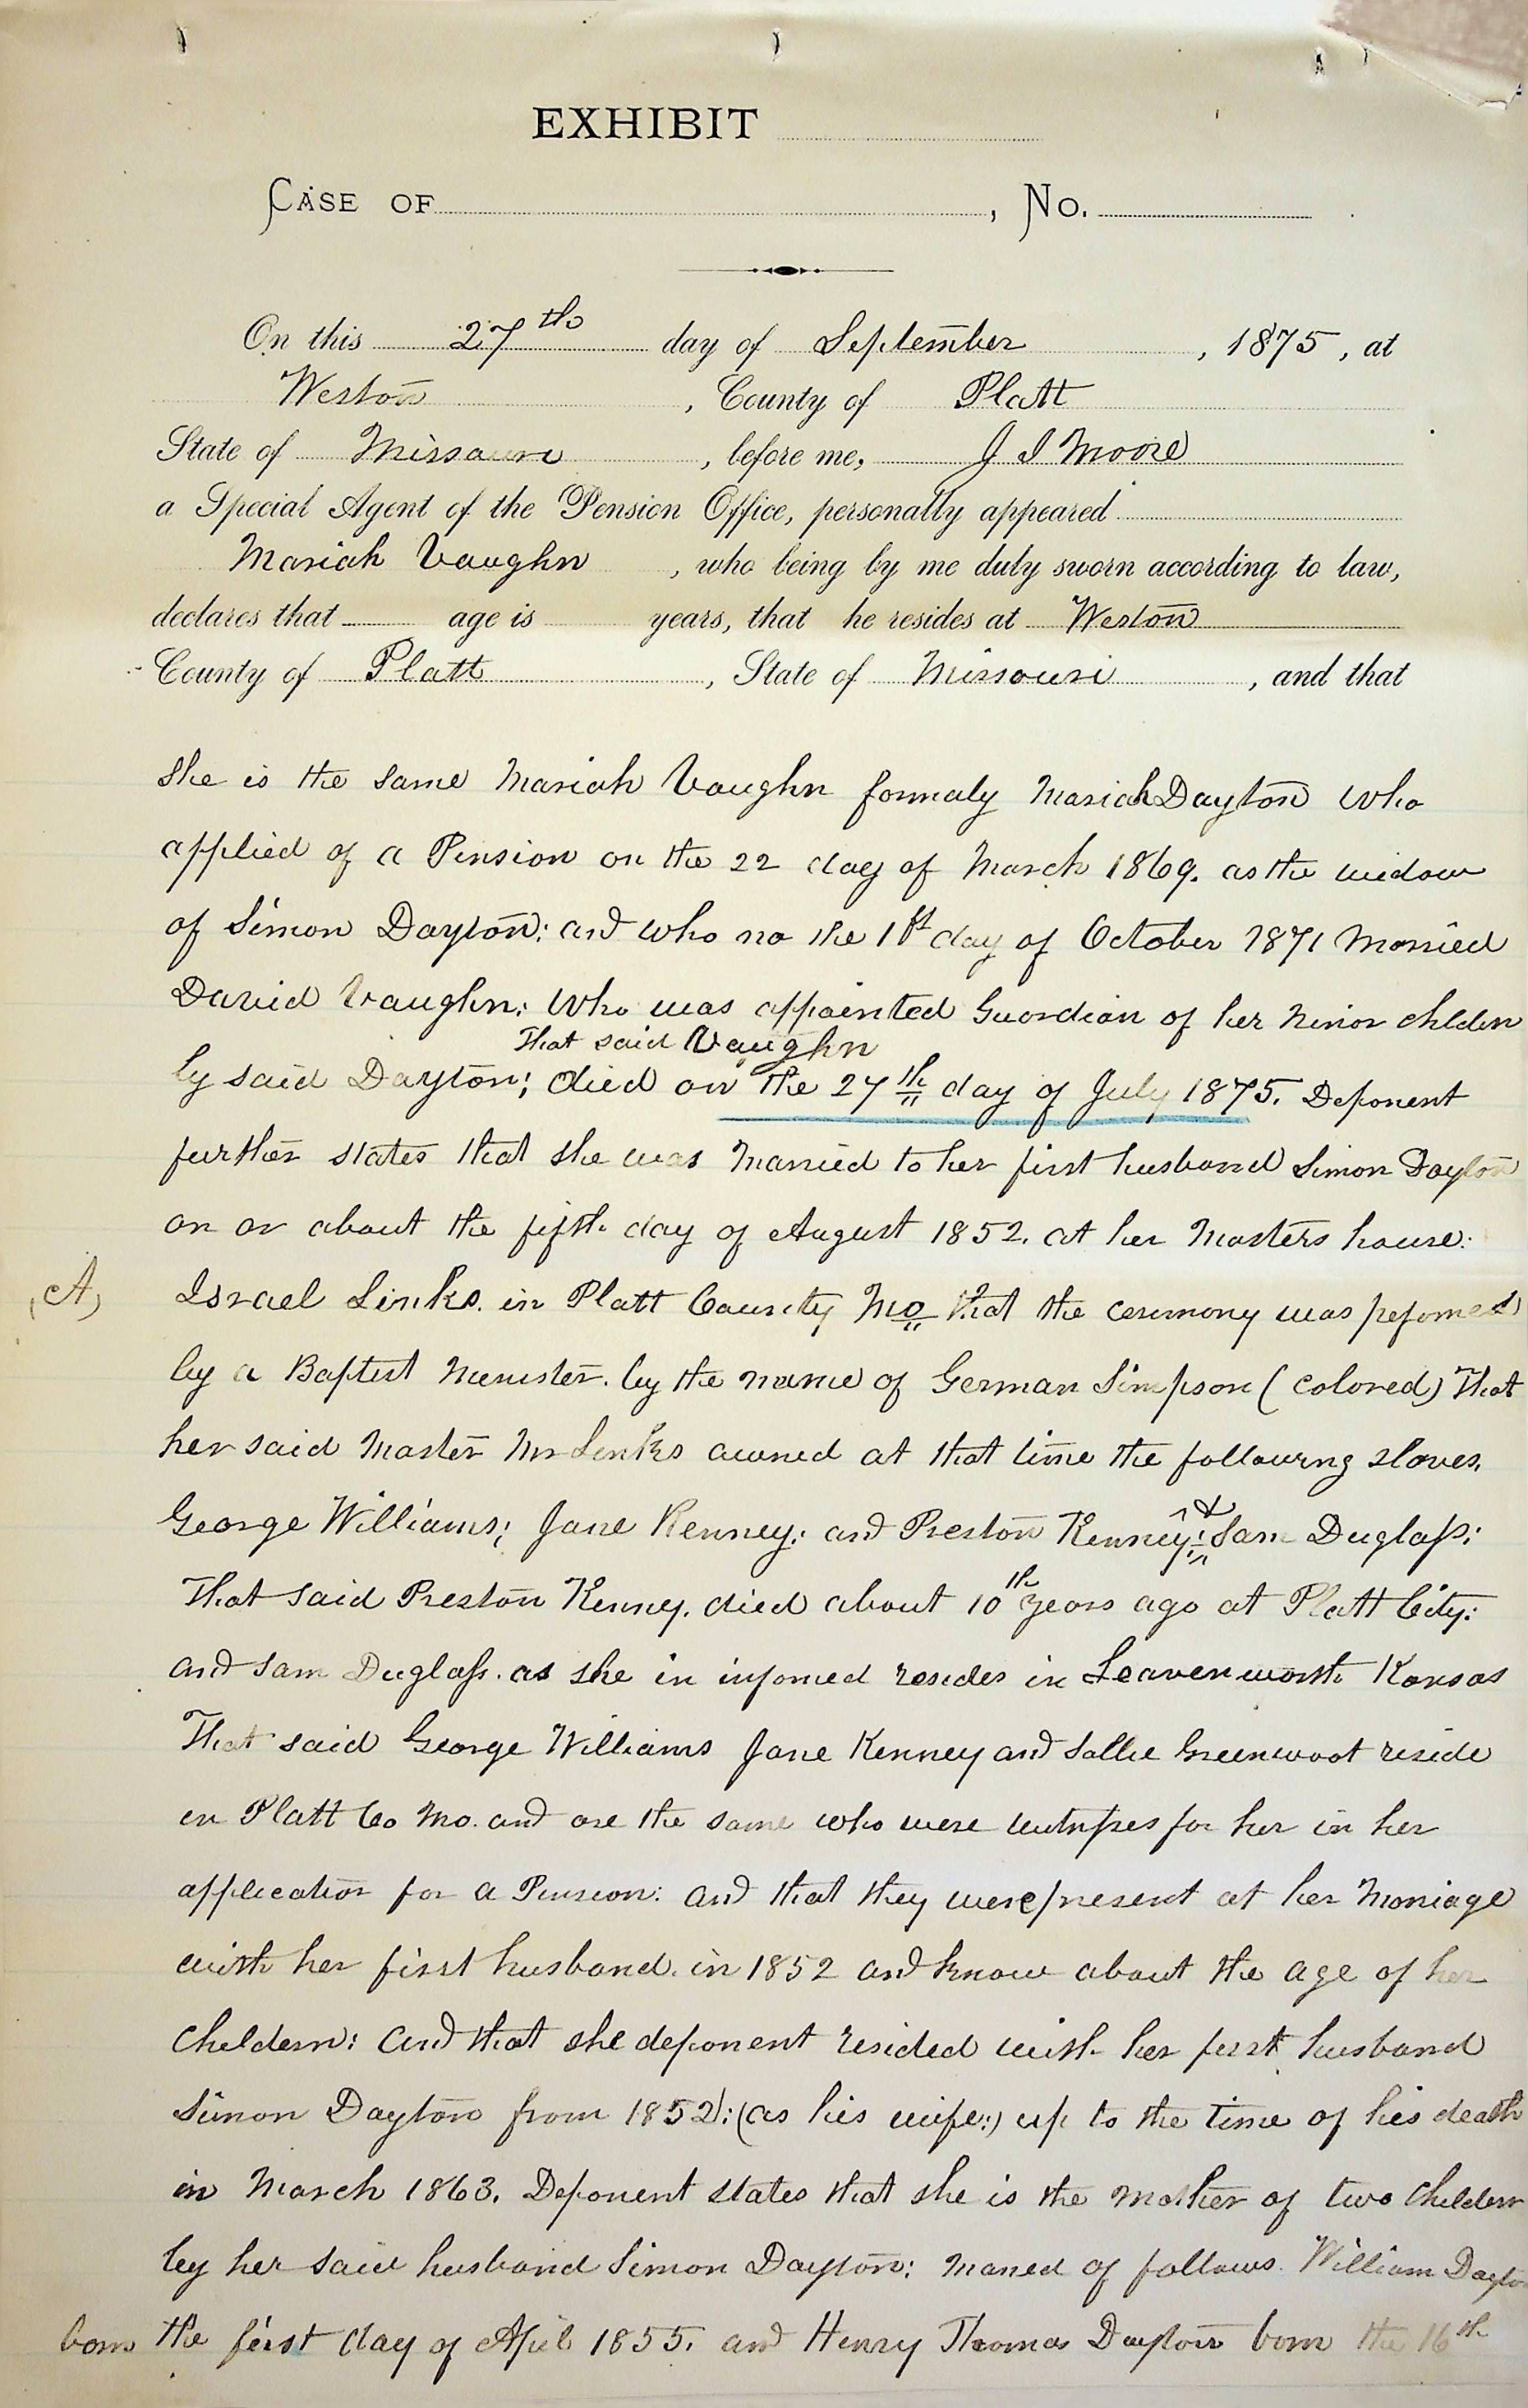 EXHIBIT
CASE OF , No.
On this 27th day of September , 1875, at
Weston , County of Platt
State of Missouri , before me, J I Moore
a Special Agent of the Pension Office, personally appeared
Mariah Vaughn , who being by me duly sworn according to law,
declares that age is years, that he resides at Weston
County of Platt , State of Missouri , and that
she is the same Mariah Vaughn formaly Mariah Dayton who
applied of a Pension on the 22 day of March 1869. as the widow
of Simon Dayton; and who no the 1st day of October 1871 Married
David Vaughn; Who was appointed Guordian of her Minor childern
That said Vaughn
by said Dayton; died on the 27th day of July 1875. Deponent
further states that she was Married to her first husband Simon Dayton
on or about the fifth day of August 1852. at her Masters house:
(A) Israel Links. in Platt County Mo that the ceremony was pefomed
by a Baptist Menister. by the name of German Simpson (Colored) That
her said Master Mr Links owned at that time the following slaves.
George Williams; Jane Kenney; and Preston Kenney; & Sam Duglass;
That said Preston Kenney. died about 10th years ago at Platt City;
and Sam Duglass. as she in infomed resides in Leavenworth Kansas
That said George Williams Jane Kenney and Sallie Greenwoot reside
in Platt Co Mo. and are the same who were witnesses for her in her
application for a Pension: and that they were present at her Marriage
with her first husband. in 1852 and know about the age of her
childern: and that she deponent resided with her first husband
Simon Dayton from 1852: (as his wife:) up to the time of his death
in March 1863. Deponent states that she is the mother of two Childern
by her said husband Simon Dayton: Named of follows. William Dayton
born the first day of April 1855. and Henry Thomas Dayton born the 16th